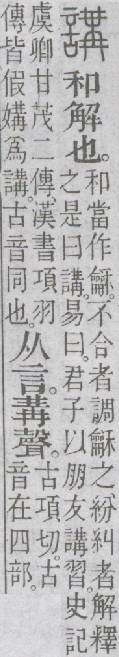 講 和解也。和當作龢。不合者調龢之、紛糾者解釋
之是曰講。易曰。君子以朋友講習。史記
虞卿甘茂二傳、漢書項羽
傳皆假媾爲講。古音同也。
从言。冓聲。古項切。古
音在四部。